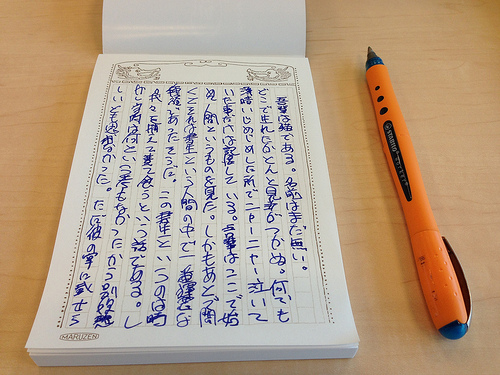 吾輩は猫である。名前はまだ無い。
どこで生れたかとんと見当がつかぬ。何でも
薄暗いじめじめした所でニャーニャー泣いて
いた事だけは記憶している。吾輩はここで始
人間というものを見た。しかもあとで聞
くとそれは書生という人間の中で一番獰悪な
種族であったそうだ。この書生というのは時
々我々を捕えて煮て食うという話である。し
当時は何という考もなかったから別段恐
しいとも思わなかった。ただ彼の掌に載せら
MARUZEN